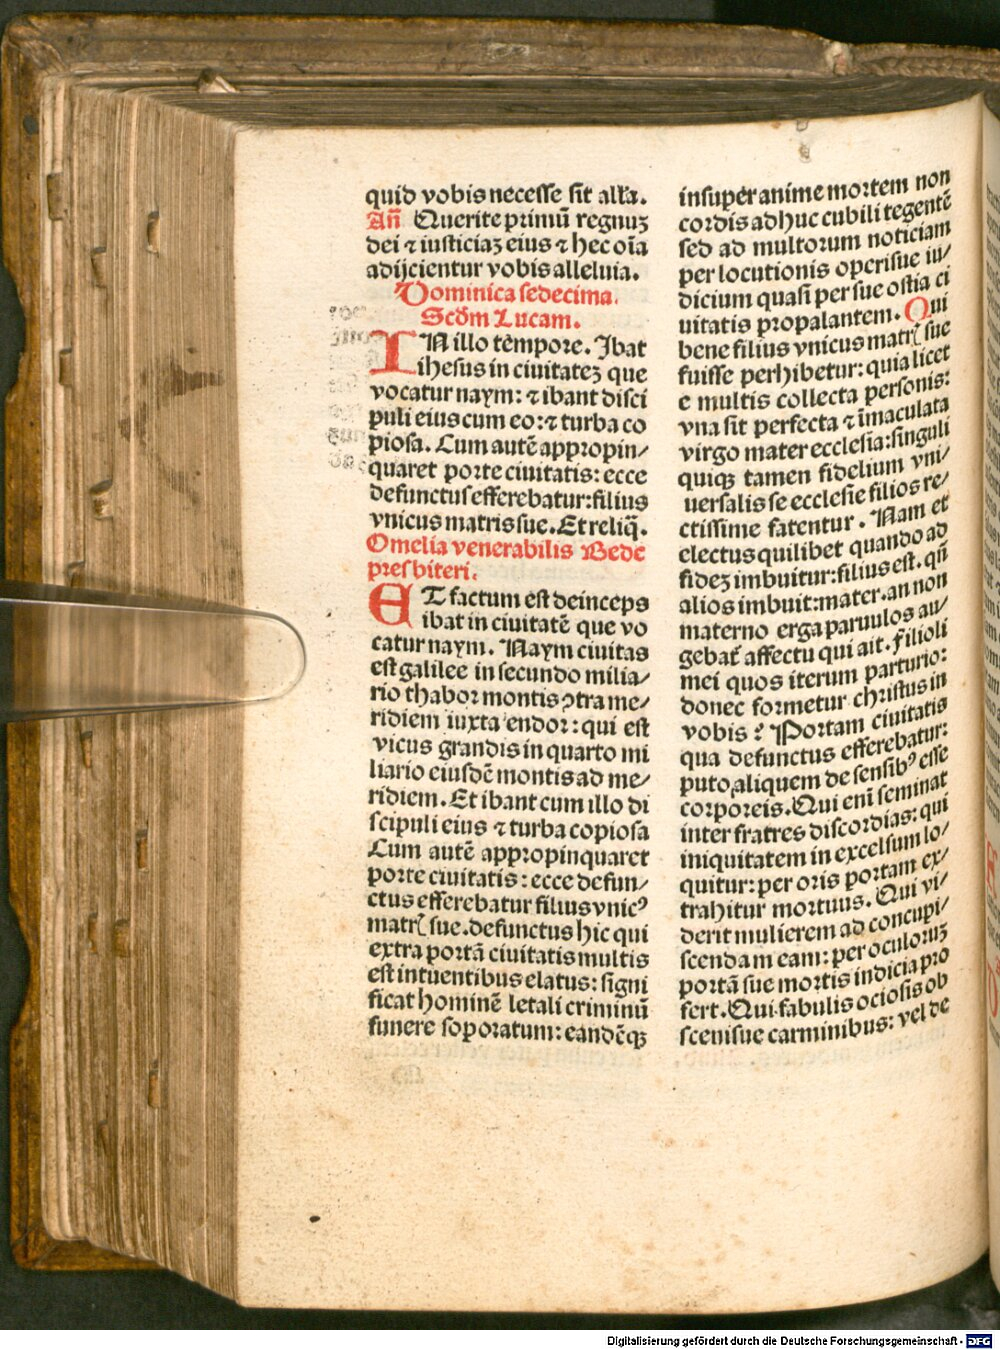 quid vobis necesse sit alľa.
Añ Querite primū regnuȝ
dei ⁊ iusticiaȝ eius ⁊ hec oīa
adijcientur vobis alleluia.
Dominica sedecima.
Scďm Lucam.
IN illo tēmpore. Ibat
ihesus in ciuitateȝ que
vocatur naym: ⁊ ibant disci
puli eius cum eo: ⁊ turba co
piosa. Cum autē appropin/
quaret porte ciuitatis: ecce
defunctus efferebatur: filius
vnicus matris sue. Et reliq̄.
Omelia venerabilis Bede
presbiteri.
ET factum est deinceps
ibat in ciuitatē que vo
catur naym. Naym ciuitas
est galilee in secundo milia/
rio thabor montis ↄtra me/
ridiem iuxta endor: qui est
vicus grandis in quarto mi
liario eiusdē montis ad me/
ridiem. Et ibant cum illo di
scipuli eius ⁊ turba copiosa
Cum autē appropinquaret
porte ciuitatis: ecce defun/
ctus efferebatur filius vnicꝰ
matrꝭ sue. defunctus hic qui
extra portā ciuitatis multis
est intuentibus elatus: signi
ficat hominē letali criminū
funere soporatum: eandēqꝫ
insuper anime mortem non
cordis adhuc cubili tegentē
sed ad multorum noticiam
per locutionis operisue iu/
dicium quasi per sue ostia ci
uitatis propalantem. Qui
bene filius vnicus matrꝭ sue
fuisse perhibetur: quia licet
e multis collecta personis:
vna sit perfecta ⁊ īmaculata
virgo mater ecclesia: singuli
quiqꝫ tamen fidelium vni/
uersalis se ecclesie filios re/
ctissime fatentur. Nam et
electus quilibet quando ad
fideȝ imbuitur: filius est. qn̄
alios imbuit: mater. an non
materno erga paruulos au/
gebat᷑ affectu qui ait. Filioli
mei quos iterum parturio:
donec formetur christus in
vobis? Portam ciuitatis
qua defunctus efferebatur:
puto aliquem de sensibꝰ esse
corporeis. Qui enī seminat
inter fratres discordias: qui
iniquitatem in excelsum lo/
quitur: per oris portam ex/
trahitur mortuus. Qui vi/
derit mulierem ad concupi/
scendam eam: per oculoruȝ
portā sue mortis indicia pro
fert. Qui fabulis ociosis ob
scenisue carminibus: vel de
Digitalisierung gefördert durch die Deutsche Forschungsgemeinschaft - DFG